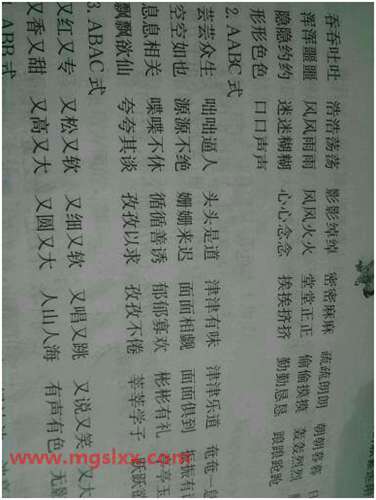 吞吞吐吐 浩浩荡荡 影影绰绰 密密麻麻 疏疏朗朗 朝朝暮暮
浑浑噩噩 风风雨雨 风风火火 堂堂正正 偷偷摸摸 轰轰烈烈
隐隐约约 迷迷糊糊 心心念念 挨挨挤挤 勤勤恳恳 踉踉跄跄
形形色色 口口声声
2. AABC 式
芸芸众生 咄咄逼人 头头是道 津津有味 津津乐道 奄奄一
空空如也 源源不绝 姗姗来迟 面面相觑 面面俱到 振振有
息息相关 喋喋不休 循循善诱 郁郁寡欢 彬彬有礼 亭亭玉
飘飘欲仙 夸夸其谈 孜孜以求 孜孜不倦 莘莘学子
3. ABAC 式
又红又专 又松又软 又细又软 又唱又跳 又说又笑 又大
又香又甜 又高又大 又圆又大 人山人海 有声有色 无影
ABB 式
www.mgslxx.com